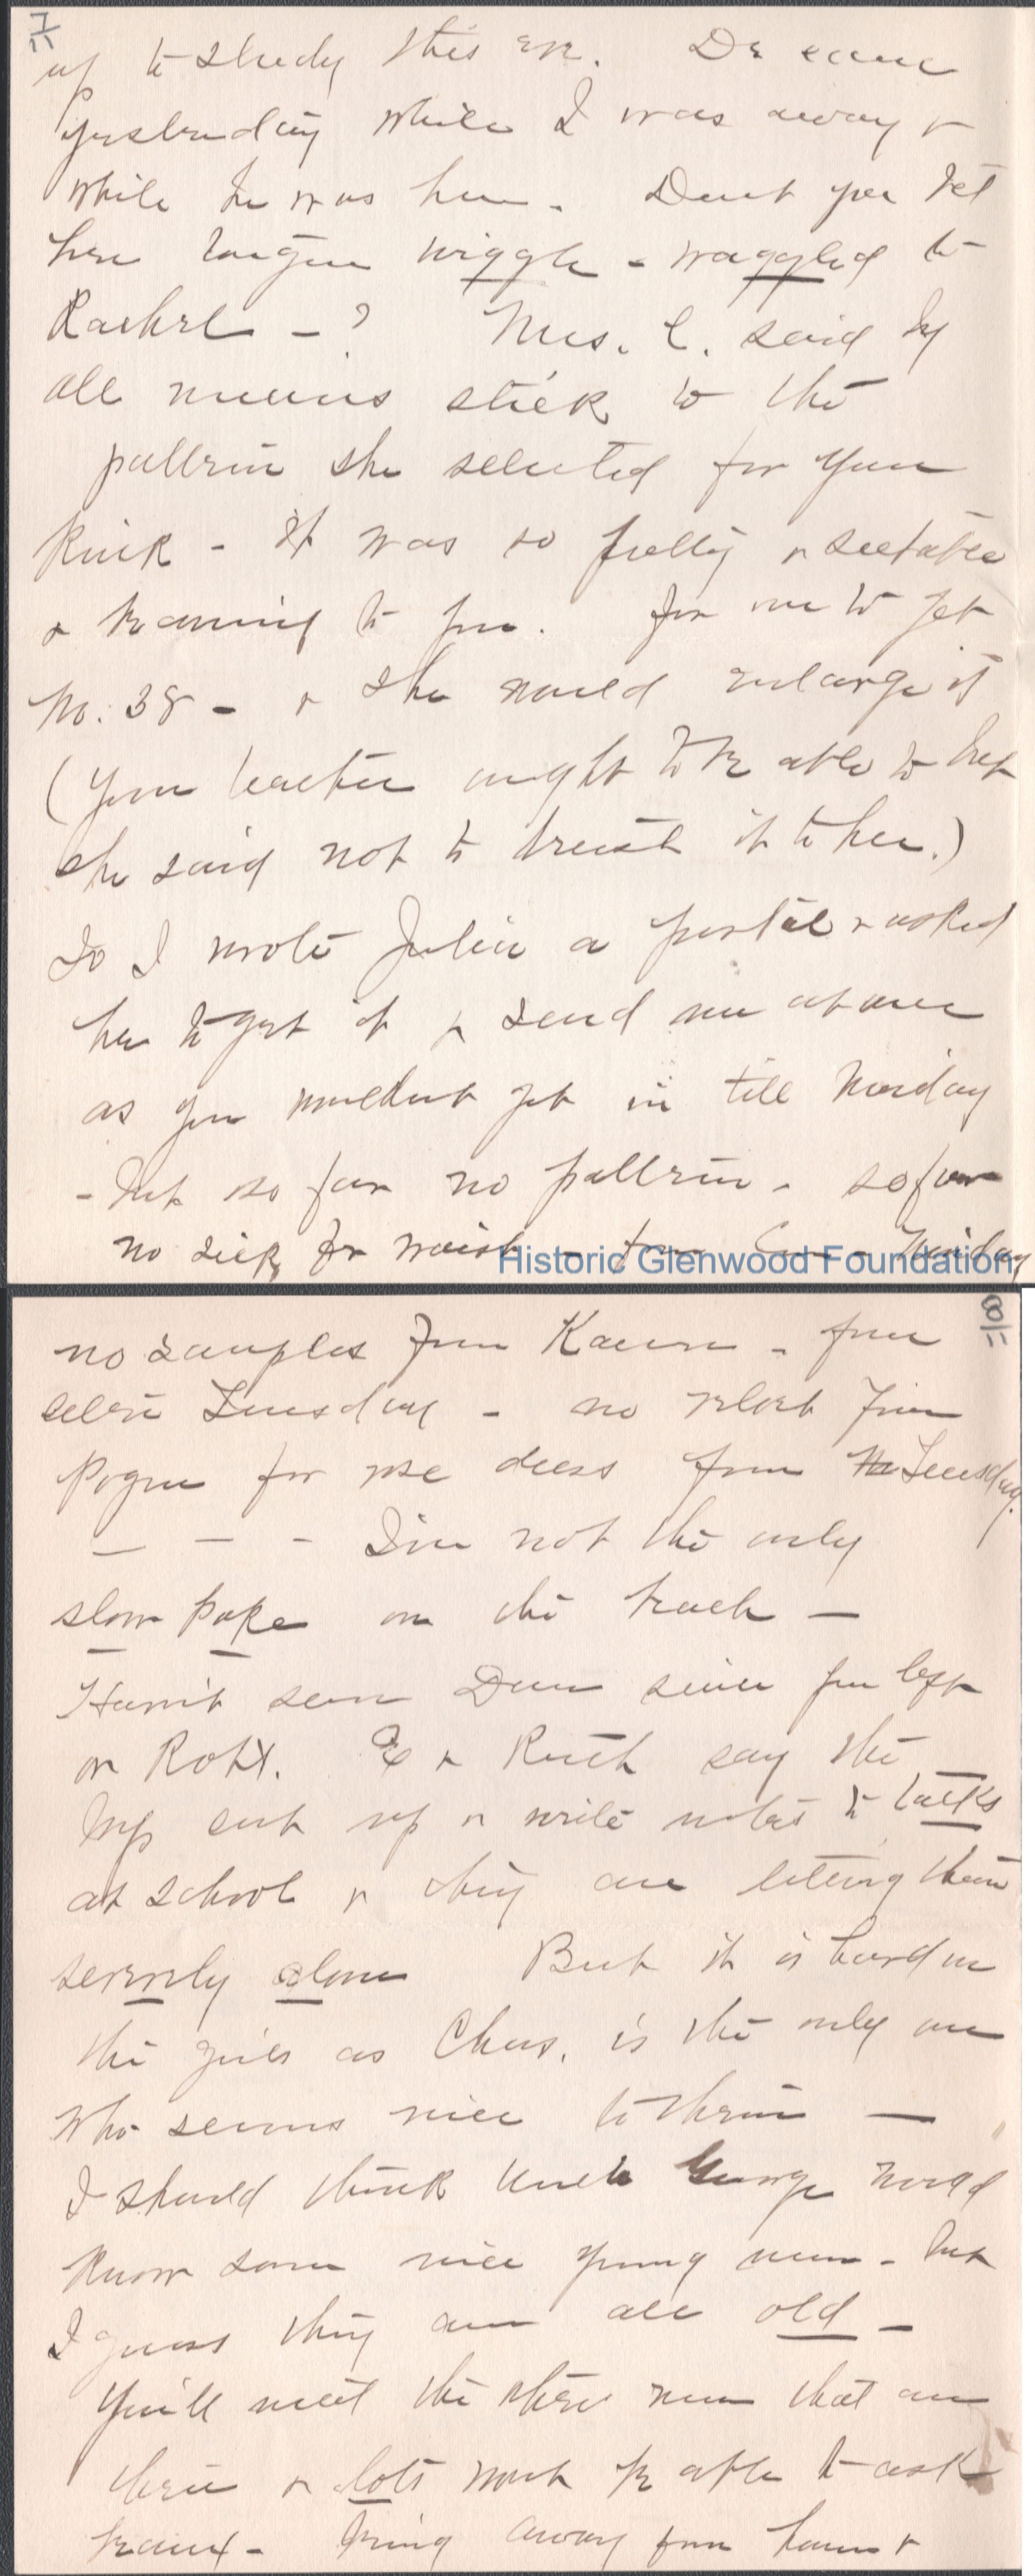 7/11
up to study this eve. Dr came
yesterday while I was away &
while he was here. Dont you bet
her tongue wiggle - waggled to
Rachel - ? Mrs. C. said by
all means stick to the
pattern she selected for your
- It was so pretty & suitable
& becoming to you. for me to get
No. 38 - & she would enlarge it
(Your teacher ought to be able to but
she said not to trust it to her.)
So I wrote Julia a postal & asked
her to get it & send me at once
as you wouldnt get in till Monday
- but so far no pattern - so far
no silk for waist - from
Historic Glenwood Foundation
8/11
no samples from - from
Tuesday - no from
Pogue for rose dress from Tuesday.
- - - I'm not the only
slow poke on the track -
Havn't seen since you left
or Robt. E & Ruth say the
boys cut up & write notes to
at school & they are letting them
serenely alone But it is hard on
the girls as Chas. is the only one
who seems nice to them -
I should think Uncle George would
know some nice young men - but
I guess they are all old -
You'll meet the three men that are
there & lots wont be able to ask
- being away from home &